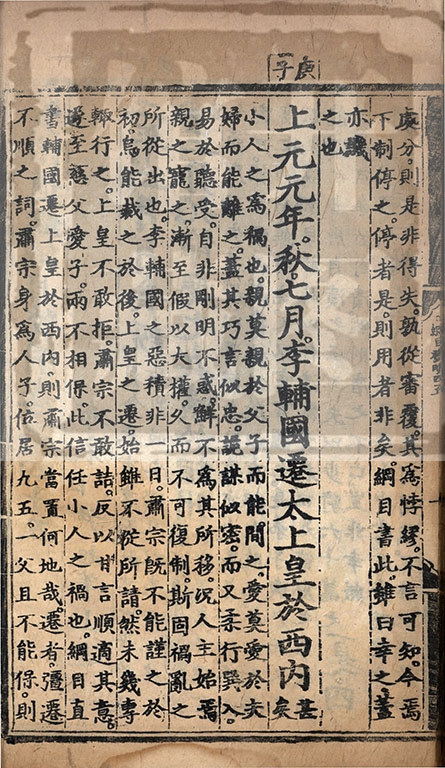 庚子
處分。則是非得失。孰從審覆。其爲悖繆。不言可知。今焉
下制停之。停者是。則用者非矣。綱目書此。雖曰幸之。蓋
亦譏
之也
上元元年。秋。七月。李輔國遷太上皇於西內甚矣
小人之爲禍也。親莫親於父子而能間之。愛莫愛於夫
婦而能離之。蓋其巧言似忠。詭謀似密。而又柔行巽入。
易於聽受。自非剛明不惑。鮮不爲其所移。况人主始焉
親之寵之。漸至假以大權。久而不可復制。斯固禍亂之
所從出也。李輔國之惡積非一日。肅宗旣不能謹之於
初。烏能裁之於後。上皇之遷。始雖不從所請。然未幾專
輙行之。上皇不敢拒。肅宗不敢詰。反以甘言順適其意。
遂至慈父愛子。兩不相保。此信任小人之禍也。綱目直
書輔國遷上皇於西內。則肅宗當置何地哉。遷者。彊遷
不順之詞。肅宗身爲人子。位居九五。一父且不能保。則